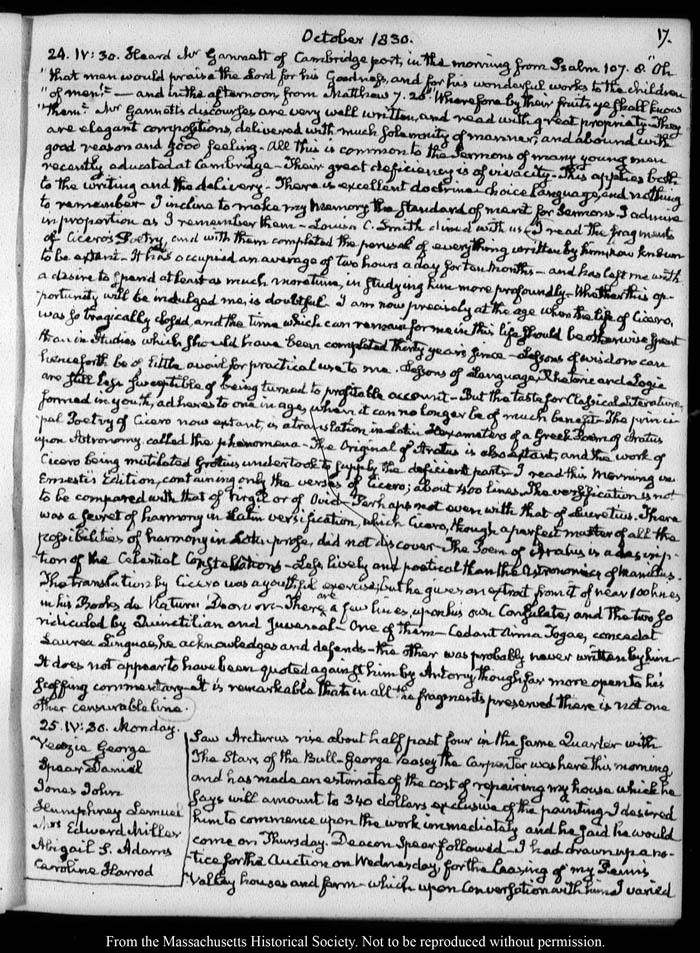 October 1830.
17.
24. IV:30. Heard Mr Gannett of Cambridge port, in the morning from Psalm 107. 8. "Oh
"that men would praise the Lord for his Goodness, and for his wonderful works to the children
"of men!" — and in the afternoon from Matthew 7. 20 "Wherefore by their fruits ye shall know
"them." Mr Gannett's discourses are very well written, and read with great propriety. They
are elegant compositions, delivered with much solemnity of manner, and abound with
good reason and good feeling. All this is common to the Sermons of many young men
recently educated at Cambridge — Their great deficiency is of vivacity — This applies both
to the writing and the delivery — There is excellent doctrine, choice language, and nothing
to remember. I incline to make my Memory the Standard of merit for Sermons. I admire
in proportion as I remember them — Louisa C. Smith dined with us. I read the fragments
of Cicero's Poetry, and with them completed the perusal of everything written by him, now known
to be extant. It has occupied an average of two hours a day for ten months — and has left me with
a desire to spend at least as much more time, in studying him more profoundly. Whether this op-
portunity will be indulged me, is doubtful. I am now precisely at the age when the life of Cicero,
was so tragically closed, and the time which can remain for me in this life should be otherwise spent
than in Studies which should have been completed thirty years since — Lessons of wisdom can
henceforth be of little avail for practical use to me. Lessons of Language, Rhetoric and Logic
are still less susceptible of being turned to profitable account — But the taste for Classical Literature,
formed in youth, adheres to one in age, when it can no longer be of much benefit — The princi-
pal Poetry of Cicero now extant, is a translation in Latin Hexameters of a Greek Poem of Aratus
upon Astronomy, called the phenomena — The Original of Aratus is also extant, and the work of
Cicero being mutilated Grotius undertook to supply the deficient parts — I read this morning in
Ernesti's Edition, containing only the verses of Cicero; about 400 lines. The versification is not
to be compared with that of Virgil or of Ovid — Perhaps not even with that of Lucretius. There
was a secret of harmony in Latin versification, which Cicero, though a perfect master of all the
possibilities of harmony in Latin prose, did not discover — The Poem of Aratus is a descrip-
tion of the Celestial Constellations — Less lively and poetical than the Astronomics of Manilius.
The translation by Cicero was a youthful exercise, but he gives an extract from it of near 100 lines
in his Books de Natura Deorum — There are a few lines, upon his own Consulate, and the two so
ridiculed by Quinctilian and Juvenal — One of them — Cedant Arma Togae, concedat
Laurea Linguae, he acknowledges and defends — the other was probably never written by him —
It does not appear to have been quoted against him by Antony, though far more open to his
scoffing commentary — It is remarkable that in all the fragments preserved there is not one
other censurable line.
25. IV:30. Monday.
Veazie George
Spear Daniel
Jones John
Humphrey Lemuel
Mrs Edward Miller
Abigail S. Adams
Caroline Harrod
Saw Arcturus rise about half past four in the same Quarter with
The Stars of the Bull — George Veasey the Carpenter was here this morning
and has made an estimate of the cost of repairing my house which he
says will amount to 340 dollars exclusive of the painting. I desired
him to commence upon the work immediately and he said he would
come on Thursday. Deacon Spear followed — I had drawn up a no-
tice for the Auction on Wednesday, for the leasing of my Penns
Valley houses and farm — which upon conversation with him I varied
From the Massachusetts Historical Society. Not to be reproduced without permission.